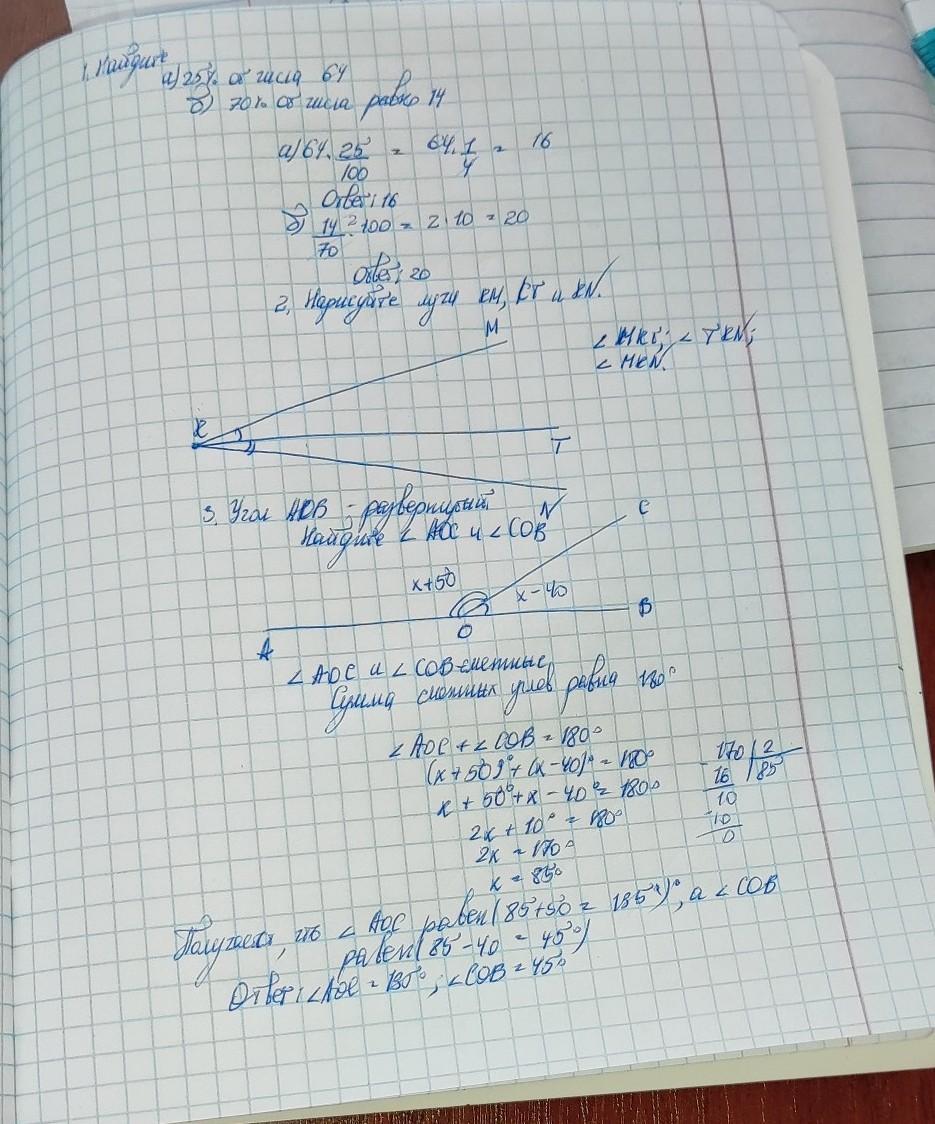 1. Найдите
а) 25% от числа 64
б) 70% от числа равно 14
а) 64 · 25/100 = 64 · 1/4 = 16
Ответ: 16
б) 14/70 · 100 = 2 · 10 = 20
Ответ: 20
2. Нарисуйте лучи KM, KT и KN.
M
∠MKT; ∠TKN;
∠MKN.
K
T
N
3. Угол AOB - развернутый.
Найдите ∠AOC и ∠COB
C
x+50
x-40
A
O
B
∠AOC и ∠COB-смежные
Сумма смежных углов равна 180°
∠AOC + ∠COB = 180°
(x+50)° + (x-40)° = 180°
x + 50° + x - 40° = 180°
2x + 10° = 180°
2x = 170°
x = 85°
170 | 2
16 | 85
10
-10
0
Получается, что ∠AOC равен (85+50 = 135°)°, а ∠COB
равен (85-40 = 45°)
Ответ: ∠AOC = 135°; ∠COB = 45°